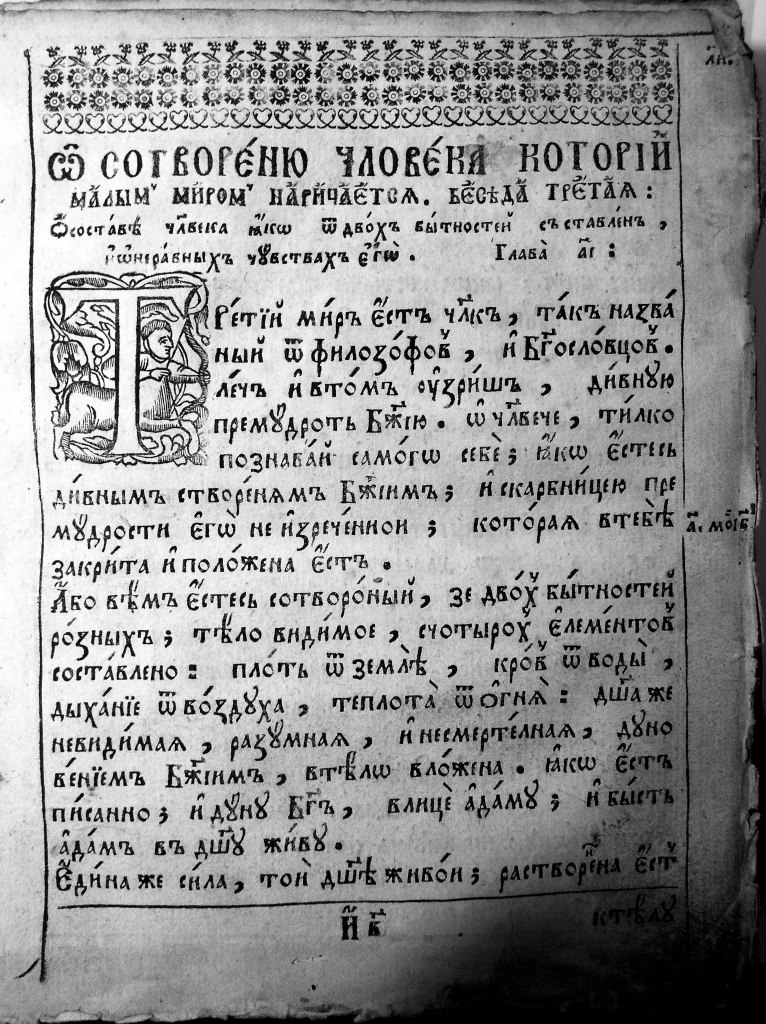 л҃и.
Ѡ҆ СОТВОРЕ́НЮ ЧЛОВЕ́КА КОТОРІ́Й
МА́ЛЫМЪ МИ́РОМЪ НАРИЧА́ЕТСЯ. БЕСѢ́ДА ТРЕ́ТАЯ :
Ѽ соста́вѣ чл҃века ꙗ҆́кѡ ѿ дво́хъ бы́тностей съставле́нъ ,
и҆ ѡ҆ нера́вныхъ чꙋвствахъ є҆гѡ̀ . Глава̀ а҃і :
ТРЕ́ТЇЙ ми́ръ є҆́стъ чл҃къ , та́къ назва́
ный ѿ филозо́фовъ , и҆ Бг҃осло́вцовъ .
ле́чъ и҆ вто́мъ ᲂу҆зри́шъ , ди́вную
премꙋ́дроть Бж҃їю . ѽ чл҃вече , ти́лко
познава́й само́гѡ себѐ ; ꙗ҆́кѡ є҆́стесь
ди́внымъ створе́нямъ Бж҃їимъ ; и҆ скарбни́цею пре
мꙋ́дрости є҆гѡ̀ не и҆зрече́нной ; кото́рая втебѣ̀
а҃. мой҃. б҃
закри́та и҆ поло́жена є҆́стъ .
А҆́бо вѣ́мъ є҆́стесь сотворо́ный , зе дво́хъ бы́тностей
ро́зныхъ ; тѣ́ло види́мое , счотыро́хъ є҆леме́нтовъ
соста́влено : пло́ть ѿ землѣ̀ , кро́въ ѿ воды̀ ,
дыха́нїе ѿ во́здуха , теплота̀ ѿ ѻ҆гня̀ : дш҃а же
невиди́мая , разꙋ́мная , и҆ несмерте́лная , дꙋно
ве́нїемъ Бж҃їимъ , втѣ́лѡ вло́жена . ꙗ҆́кѡ є҆́стъ
пи́санно ; и҆ дꙋ́нꙋ Бг҃ъ , влицѐ а҆да́мꙋ ; и҆ бы́сть
а҆да́мъ въ дш҃ꙋ жи́вꙋ .
Є҆ди́на же си́ла , той дш҃ѣ живо́й ; растворе́на є҆́стъ
И҃ в҃
ктѣ́лꙋ